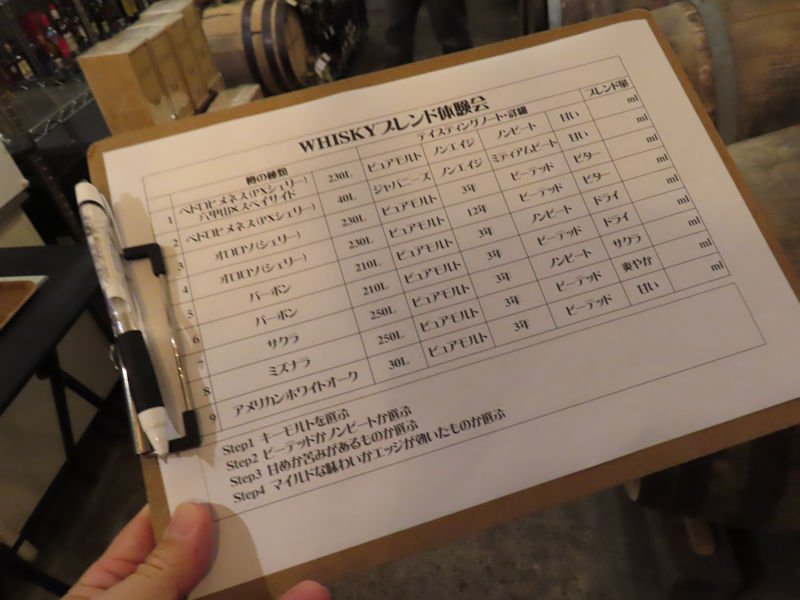 WHISKYブレンド体験会
樽の種類 テイスティングノート・詳細 ブレンド量
1 ペドロヒメネス(PXシェリー) 230L ピュアモルト ノンエイジ ノンピート 甘い ml
八甲田Xスペイサイド
2 ペドロヒメネス(PXシェリー) 40L ジャパニーズ ノンエイジ ミディアムピート 甘い ml
3 オロロソ(シェリー) 230L ピュアモルト 3年 ピーテッド ビター ml
オロロソ(シェリー) 230L ピュアモルト 12年 ピーテッド ビター ml
5 バーボン 210L ピュアモルト 3年 ノンピート ドライ ml
6 バーボン 210L ピュアモルト 3年 ピーテッド ドライ ml
7 サクラ 250L ピュアモルト 3年 ノンピート サクラ ml
8 ミズナラ 250L ピュアモルト 3年 ピーテッド 爽やか ml
9 アメリカンホワイトオーク 30L ピュアモルト 3年 ピーテッド 甘い ml
Step1 キーモルトを選ぶ
Step2 ピーテッドかノンピートか選ぶ
Step3 甘めか苦みがあるものか選ぶ
Step4 マイルドな味わいかエッジが効いたものか選ぶ